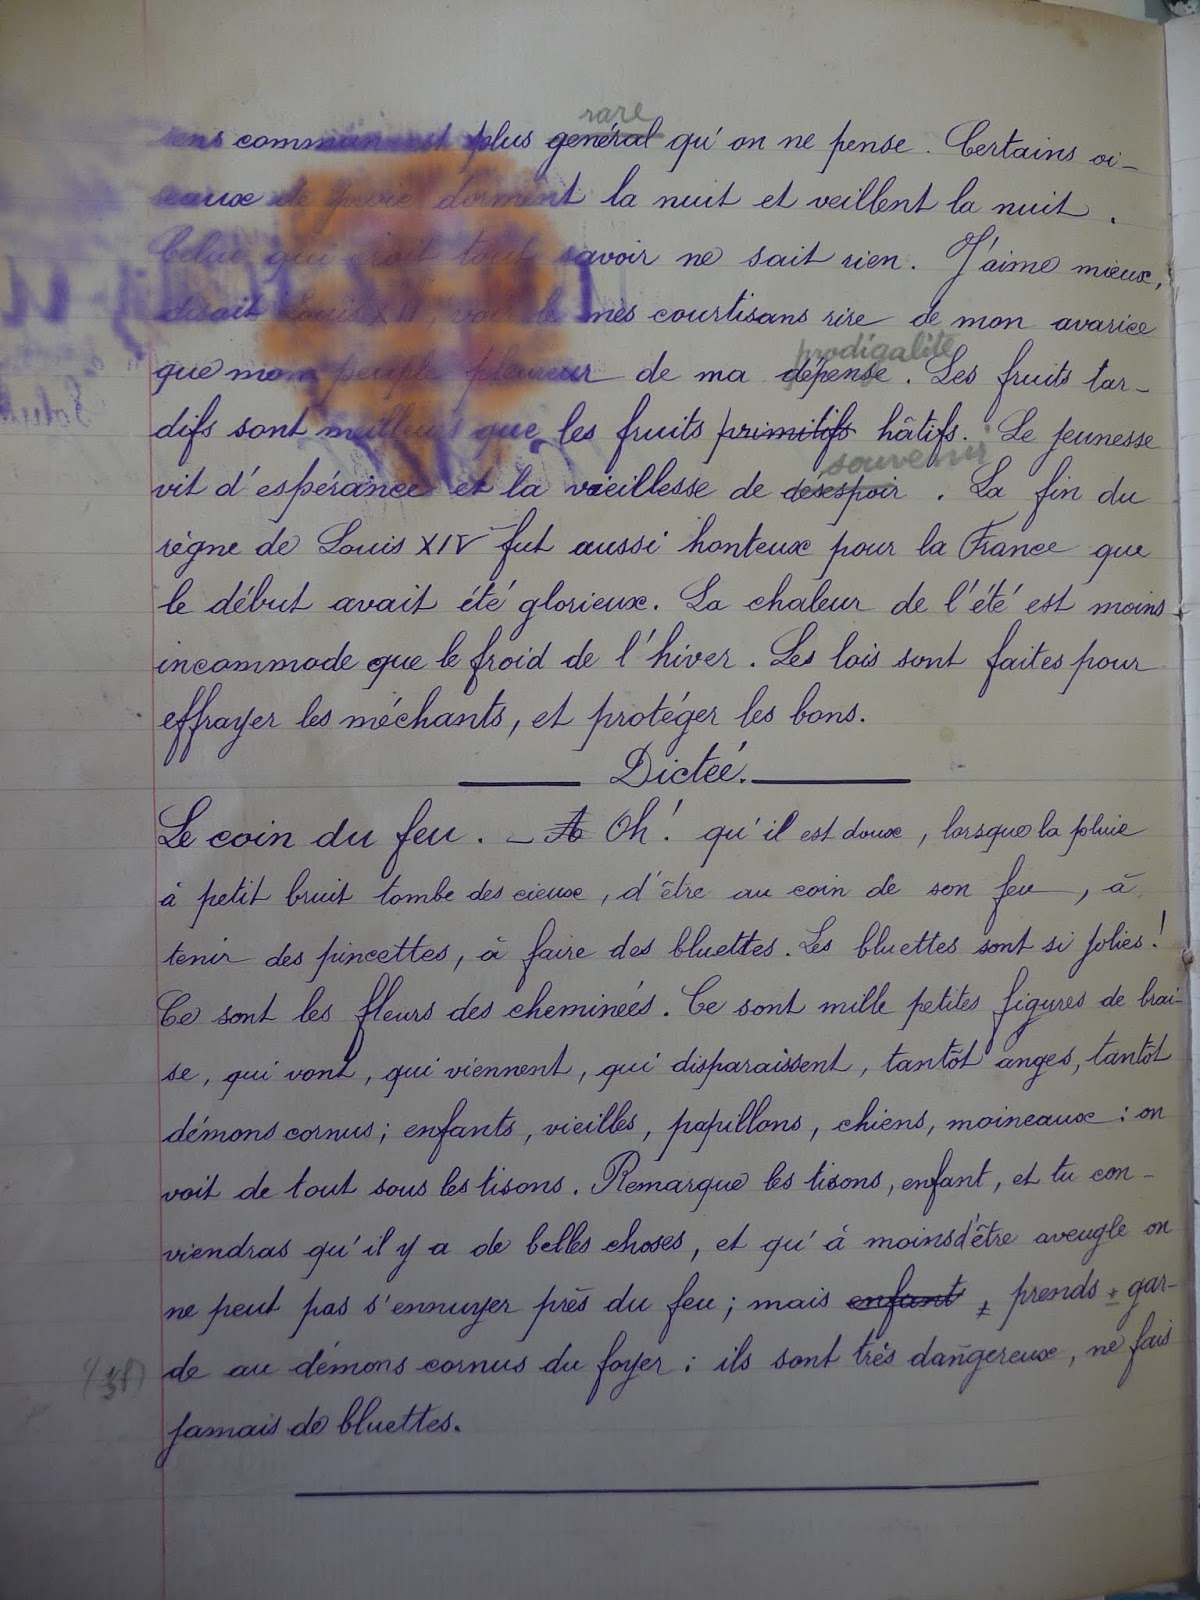 rare
sens commun est plus général qu'on ne pense. Certains oi-
seaux de proie dorment la nuit et veillent la nuit.
Celui qui croit tout savoir ne sait rien. J'aime mieux,
disait Louis XII, voir de mes courtisans rire de mon avarice
prodigalité
que mon peuple pleureur de ma dépense. Les fruits tar-
difs sont meilleurs que les fruits primitifs hâtifs. Le jeunesse
souvenir
vit d'espérance et la vieillesse de désespoir. La fin du
règne de Louis XIV fut aussi honteux pour la France que
le début avait été glorieux. La chaleur de l'été est moins
incommode que le froid de l'hiver. Les lois sont faites pour
effrayer les méchants, et protéger les bons.
Dictée.
Le coin du feu. - A Oh! qu'il est doux, lorsque la pluie
à petit bruit tombe des cieux, d'être au coin de son feu, à
tenir des pincettes, à faire des bluettes. Les bluettes sont si jolies!
Ce sont les fleurs des cheminées. Ce sont mille petites figures de brai-
se, qui vont, qui viennent, qui disparaissent, tantôt anges, tantôt
démons cornus; enfants, vieilles, papillons, chiens, moineaux: on
voit de tout sous les tisons. Remarque les tisons, enfant, et tu con-
viendras qu'il y a de belles choses, et qu'à moins d'être aveugle on
ne peut pas s'ennuyer près du feu; mais enfant, prends gar-
de au démons cornus du foyer: ils sont très dangereux, ne fais
jamais de bluettes.